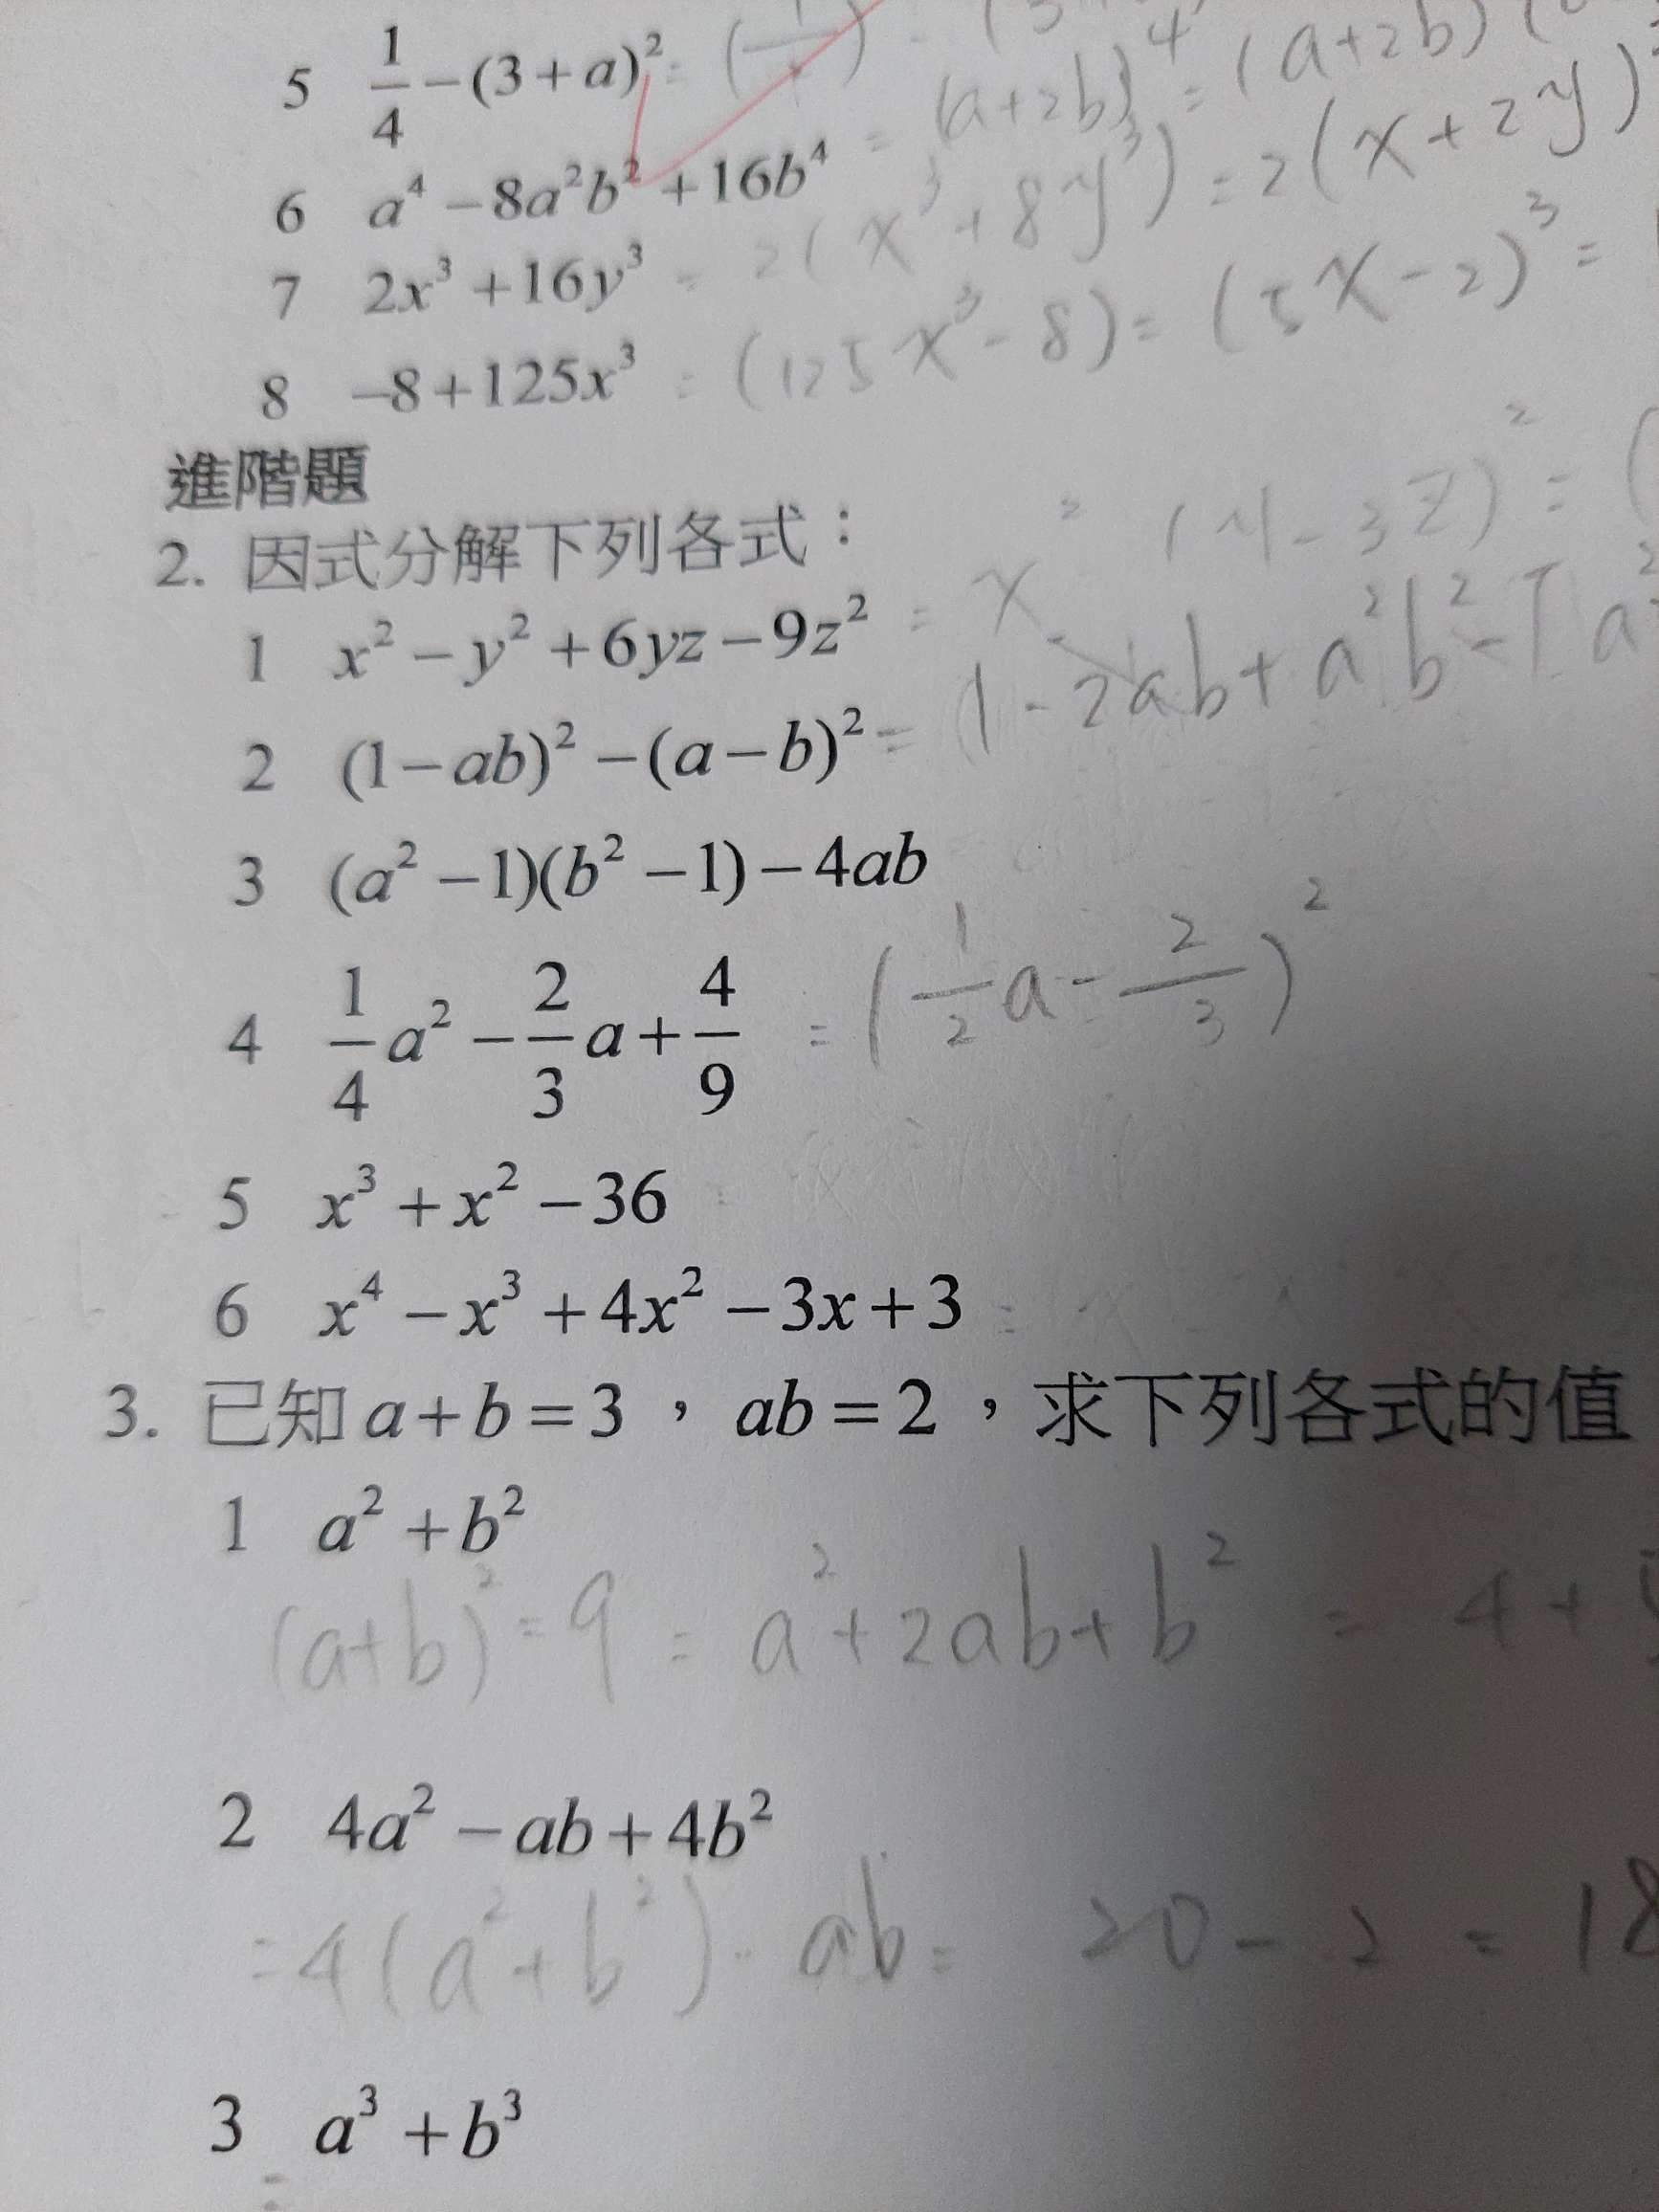 5 1/4 − (3 + a)² =
6 a⁴ − 8a²b² + 16b⁴ = (a+2b)⁴ = (a+2b)(
7 2x³ + 16y³ = 2(x³ + 8y³) = 2(x + 2y)
8 −8 + 125x³ = (125x³ − 8) = (5x − 2)³ =
進階題
2. 因式分解下列各式：
1 x² − y² + 6yz − 9z² = x² − (y − 3z)² = (
2 (1 − ab)² − (a − b)² = (1 − 2ab + a²b² − [a²
3 (a² − 1)(b² − 1) − 4ab
4 1/4 a² − 2/3 a + 4/9 = (1/2 a − 2/3)²
5 x³ + x² − 36
6 x⁴ − x³ + 4x² − 3x + 3 =
3. 已知 a + b = 3，ab = 2，求下列各式的值
1 a² + b²
(a+b)² = 9 = a² + 2ab + b² = 4 +
2 4a² − ab + 4b²
= 4(a² + b²) − ab = 20 − 2 = 18
3 a³ + b³
=